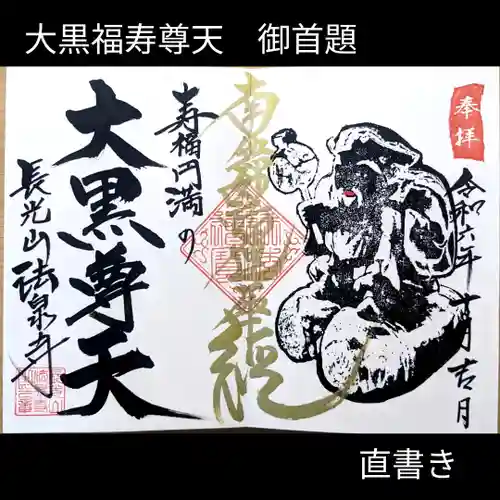 大黒福寿尊天　御首題
奉拝
令和六年十一月吉日
南無妙法蓮華経
寿福円満の
大黒尊天
長光山法泉寺
直書き